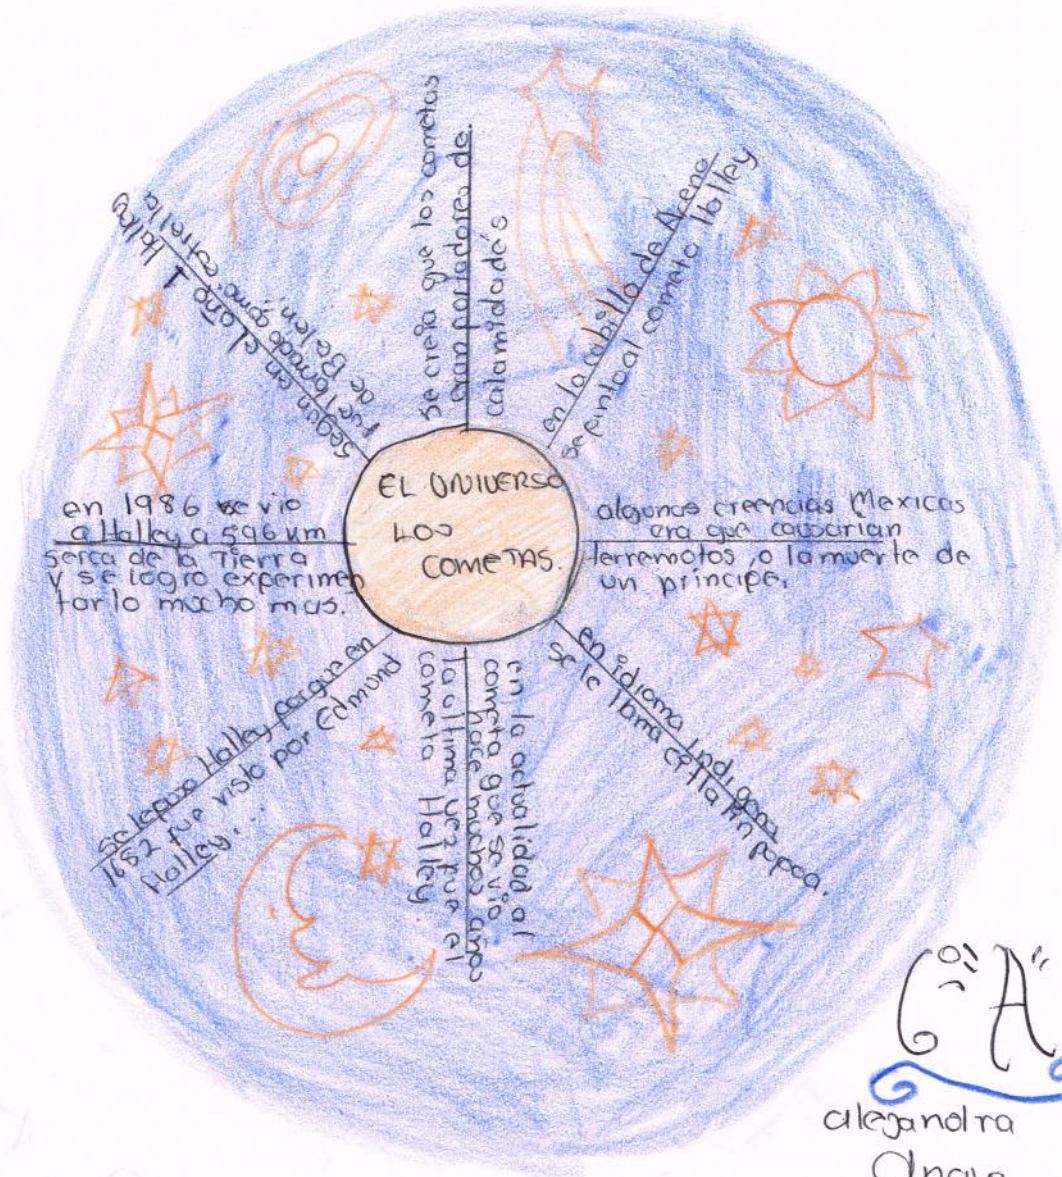 EL UNIVERSO
LOS
COMETAS.
se creía que los cometas
eran portadores de
calamidades
en la cabilla de Arena
se pinto al cometa Halley
algunas creencias Mexicas
era que causarian
terremotos, o la muerte de
un principe.
en idioma indigena
se le llama citlalin popoca.
en la actualidad al
cometa que se vio
hace muchos años
la ultima vez fue el
cometa Halley.
se le puso Halley porque en
1682 fue visto por Edmond
Halley...
en 1986 se vio
a Halley a 596 km
serca de la Tierra
y se logro experimen
tarlo mucho mas.
segun en el año 1 Halley
fue tomado como estrella
de Belen.
C A
alejandra